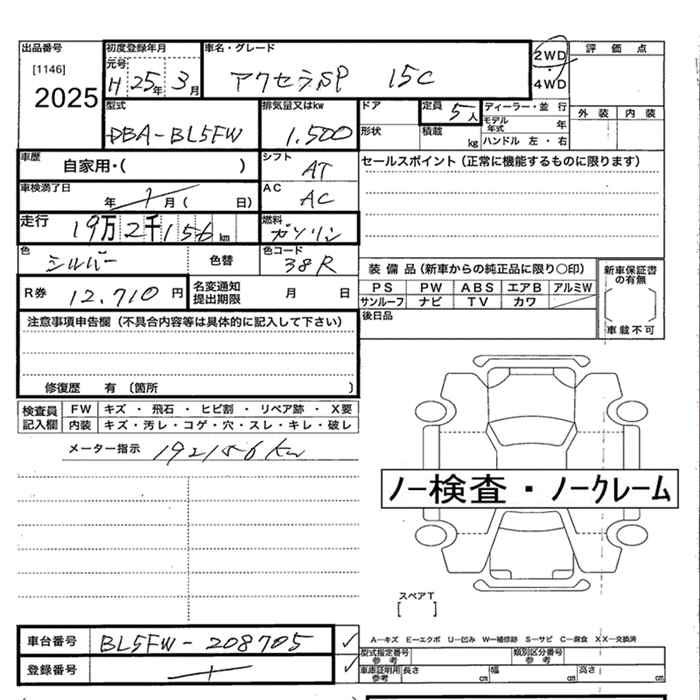 出品番号 初度登録年月 車名・グレード 2WD 評価点
[1146] 元号 H 25年 3月 アクセラSP 15C ・
2025 4WD
型式 排気量又はkw ドア 定員 5人 ディーラー・並行 外装 内装
DBA-BL5FW 1.500 形状 積載 kg モデル年式 年
ハンドル 左・右
車歴 自家用・( ) シフト AT セールスポイント (正常に機能するものに限ります)
車検満了日 年 月 ( 日) AC AC
走行 19万2千156km 燃料 ガソリン
色 シルバー 色替 色コード 38R 装備品 (新車からの純正品に限り○印) 新車保証書の有無
R券 12.710円 名変通知提出期限 月 日 PS PW ABS エアB アルミW
サンルーフ ナビ TV カワ
注意事項申告欄 (不具合内容等は具体的に記入して下さい) 後日品 車載不可
修復歴 有 (箇所 )
検査員記入欄 FW キズ・飛石・ヒビ割・リペア跡・X要
内装 キズ・汚レ・コゲ・穴・スレ・キレ・破レ
メーター指示 192156km
ノー検査・ノークレーム
スペアT
[ ]
車台番号 BL5FW-208705 ✓ A―キズ E―エクボ U―凹み W―補修跡 S―サビ C―腐食 XX―交換済
型式指定番号 参考 類別区分番号 参考
登録番号 ✓ 車庫証明用 参考 長さ cm 幅 cm 高さ cm